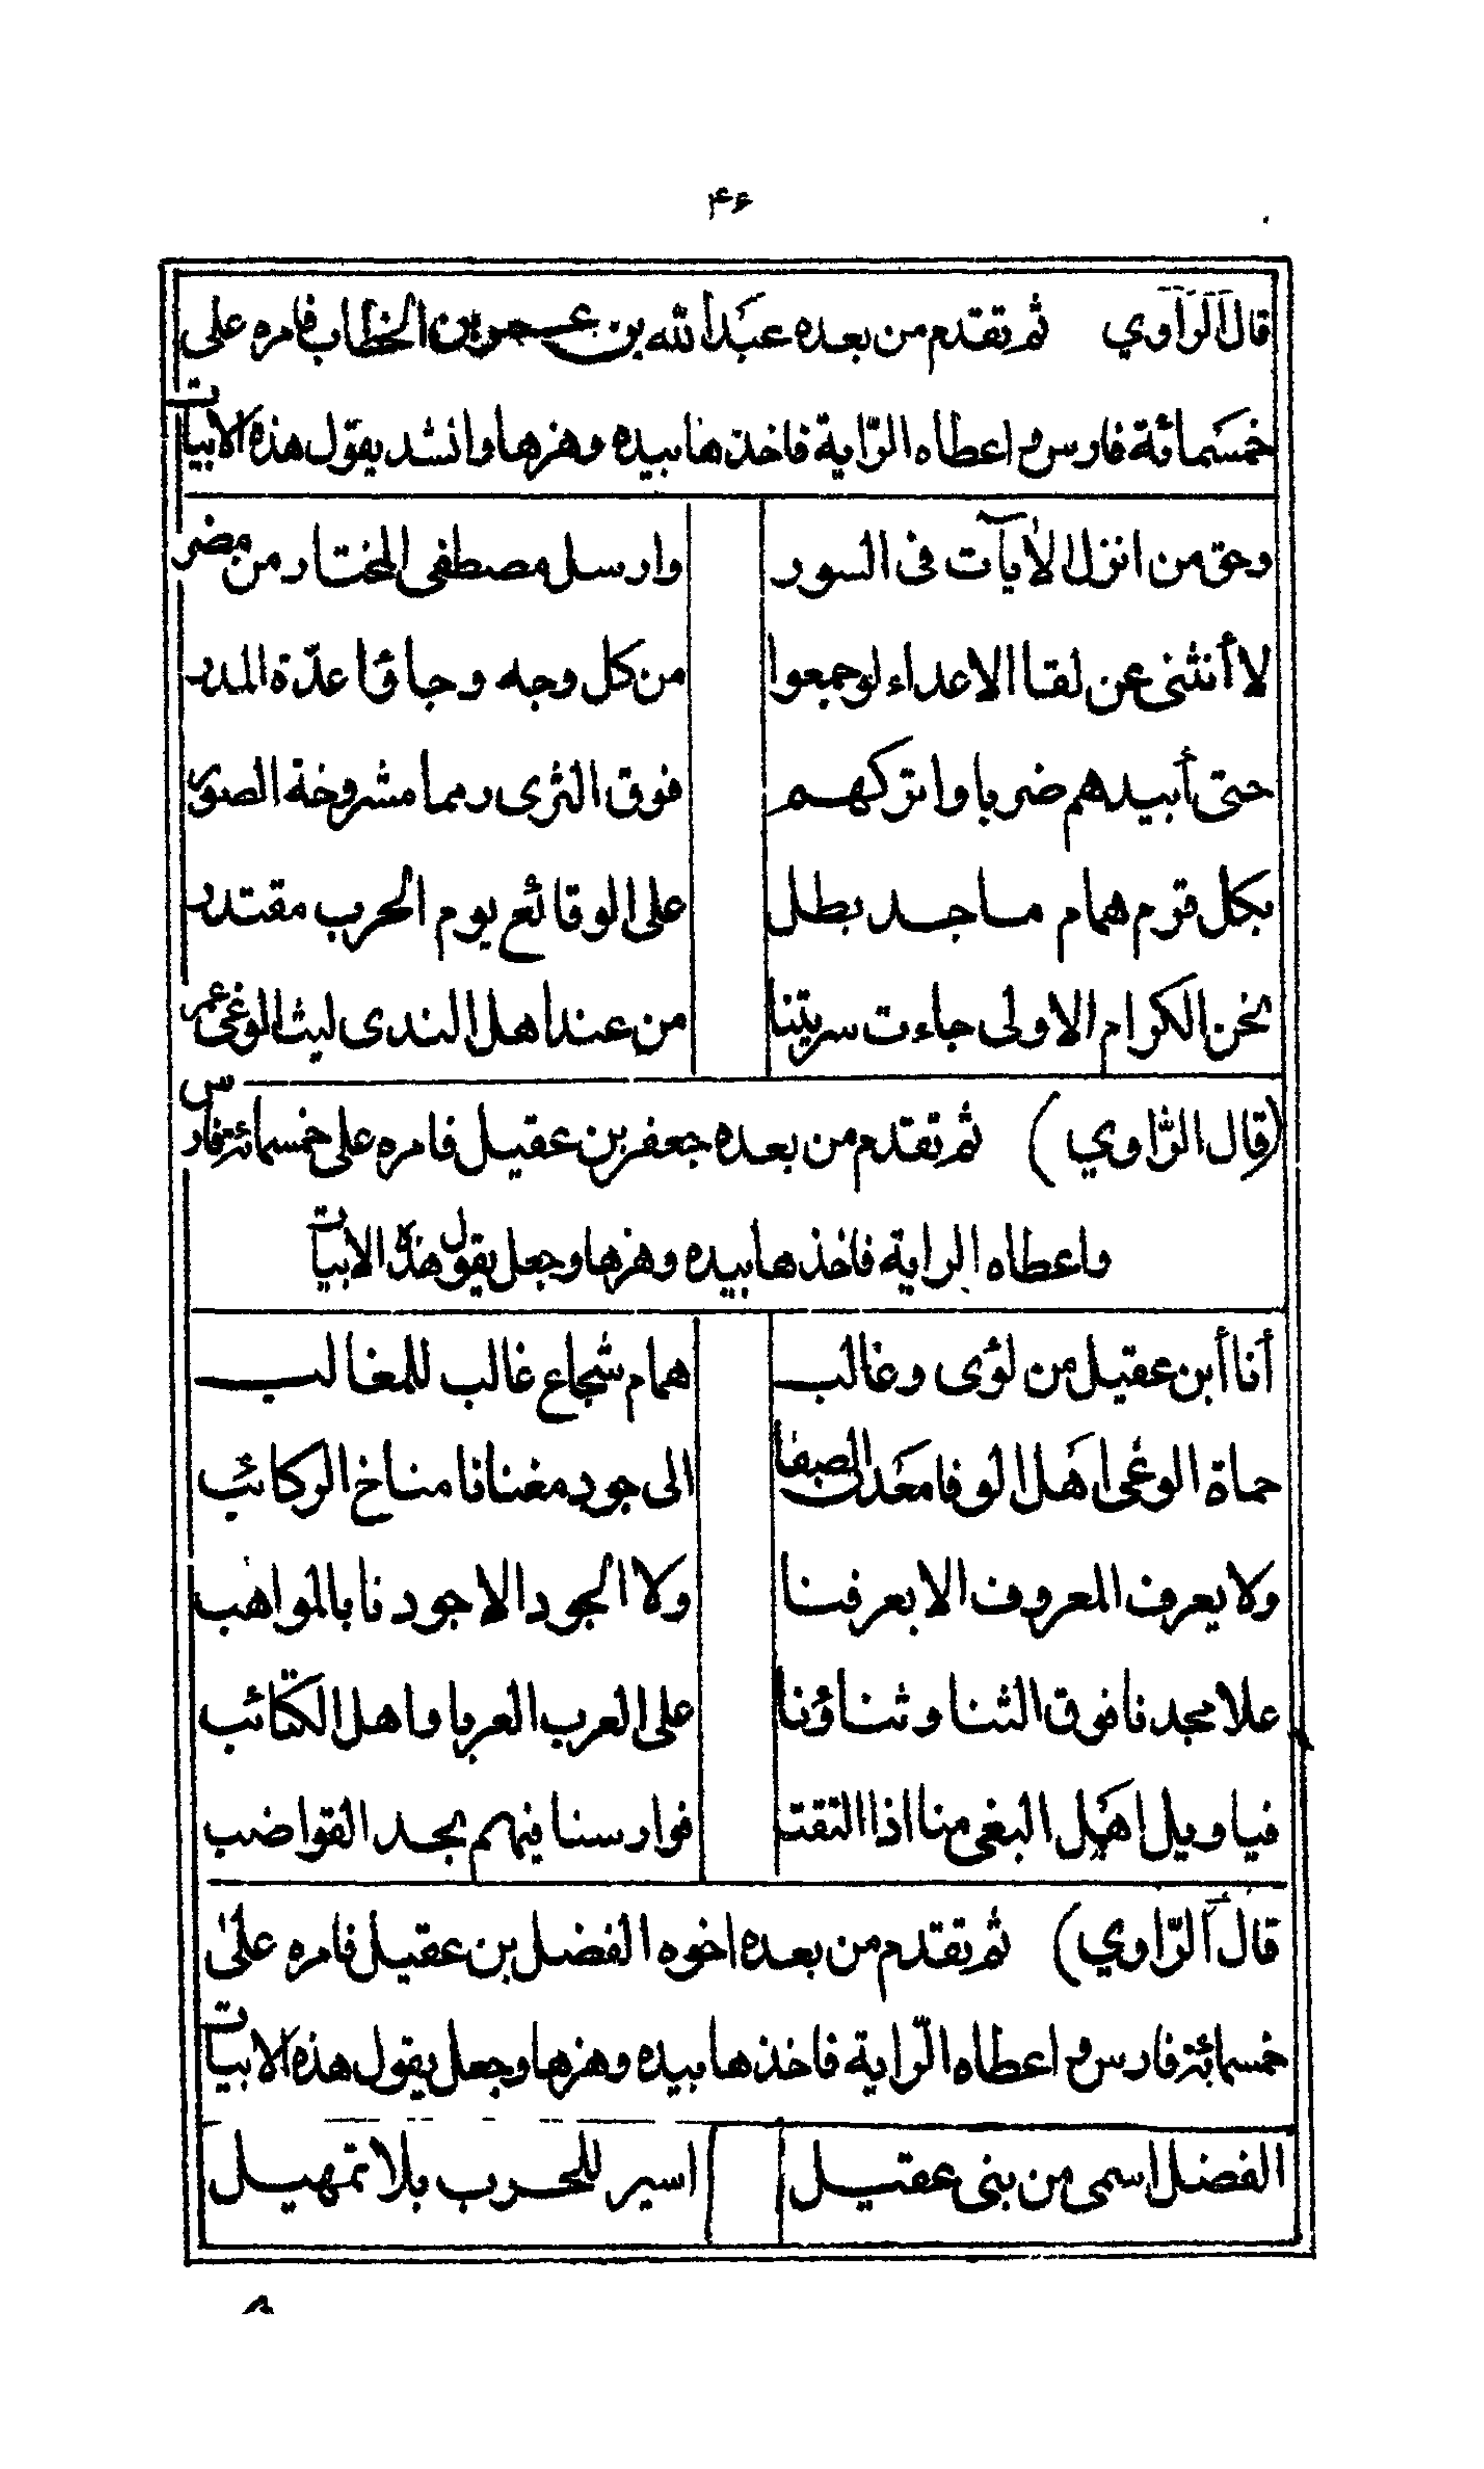 ۴۶
قال الراوي ثم تقدم من بعده عبد الله بن عمر بن الخطاب فامره على
خمسمائة فارس واعطاه الرّاية فاخذها بيده وهزها وانشد يقول هذه الابيات
وحق من انزل الآيات فى السور وارسل مصطفى المختار من مضر
لا أنثنى عن لقا الاعداء لو جمعوا من كل وجه وجاؤا عدّة المدر
حتى أبيدهم ضربا واتركهم فوق الثرى رمما مشروخة الصور
بكل قرم همام ماجد بطل على الوقائع يوم الحرب مقتدر
نحن الكرام الاولى جاءت سريتنا من عند اهل الندى ليث الوغى عمر
(قال الرّاوي) ثم تقدم من بعده جعفر بن عقيل فامره على خمسمائة فارس
واعطاه الراية فاخذها بيده وهزها وجعل يقول هذه الابيات
أنا أبن عقيل من لؤى وغالب همام شجاع غالب للمغالب
حماة الوغى اهل الوفا معدن الصفا الى جود مغنانا مناخ الركائب
ولا يعرف المعروف الا بعرفنا ولا الجود الا جودنا بالمواهب
علا مجدنا فوق الثنا وثناؤنا على العرب العربا واهل الكتائب
فيا ويل اهل البغى منا اذا التقت فوارسنا فيهم بحد القواضب
قال الرّاوي) ثم تقدم من بعده اخوه الفضل بن عقيل فامره على
خمسمائة فارس واعطاه الرّاية فاخذها بيده وهزها وجعل يقول هذه الابيات
الفضل اسمى من بنى عقيل اسير للحرب بلا تمهيل